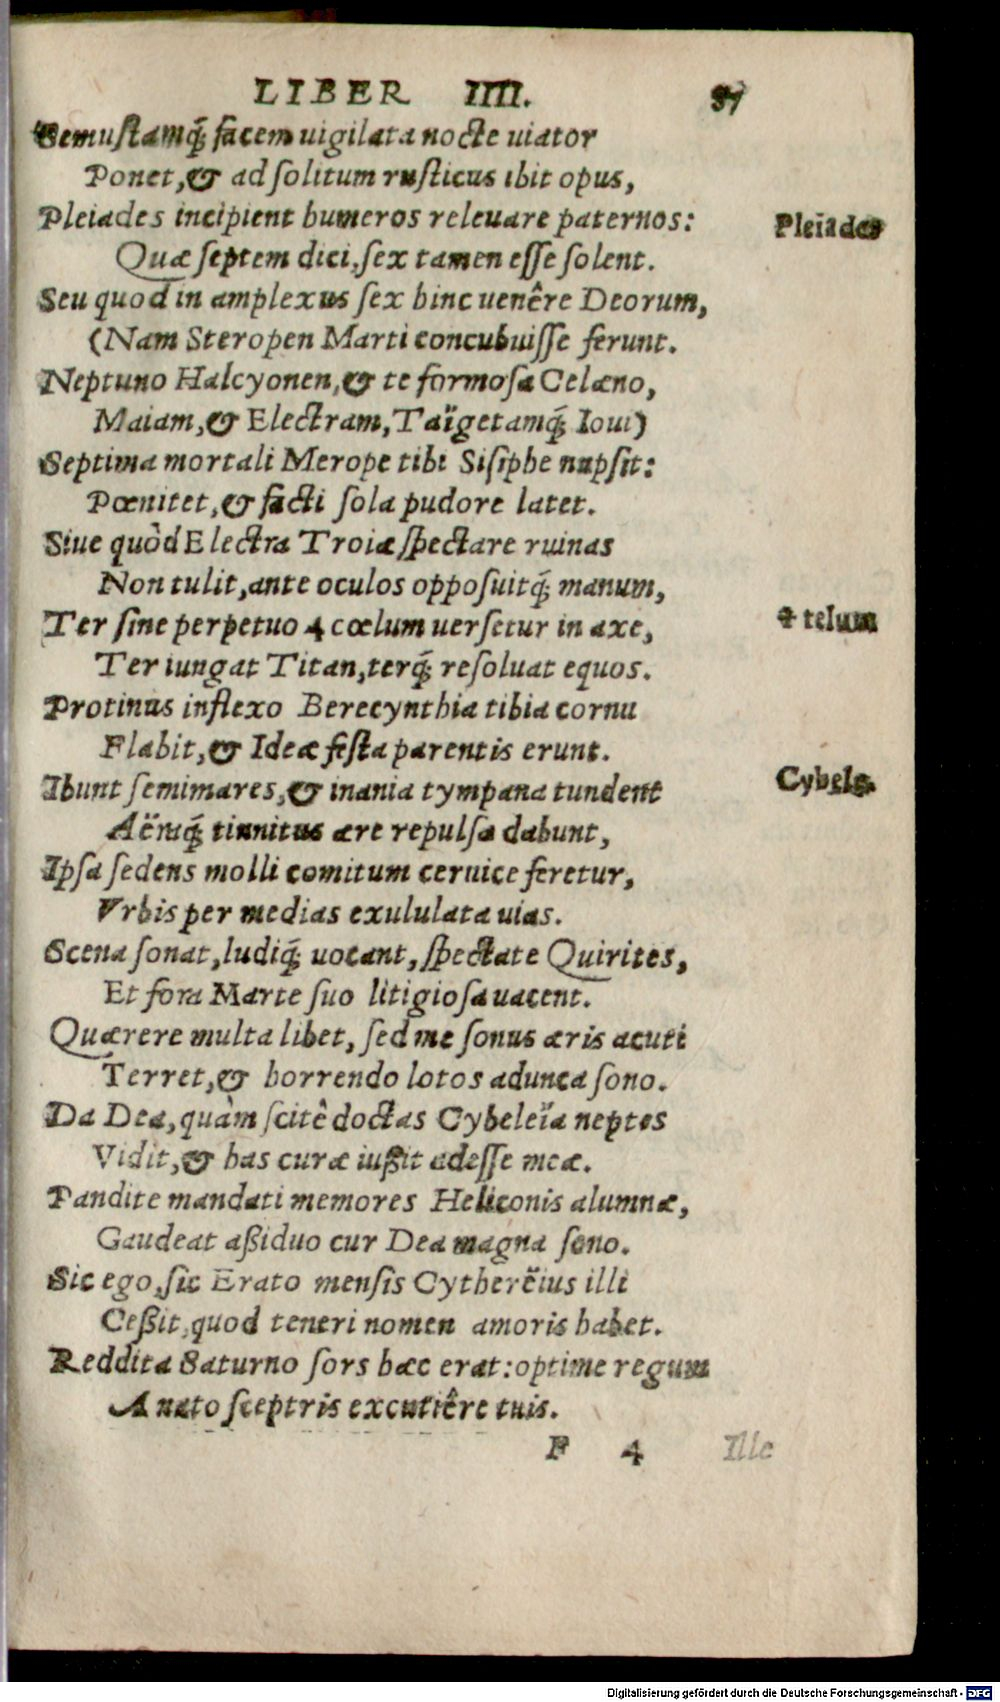 LIBER IIII. 87
Semustamq́; facem uigilata nocte uiator
Ponet, & ad solitum rusticus ibit opus,
Pleiades incipient humeros releuare paternos: Pleiades
Quæ septem dici, sex tamen esse solent.
Seu quod in amplexus sex hinc uenêre Deorum,
(Nam Steropen Marti concubuisse ferunt.
Neptuno Halcyonen, & te formosa Celæno,
Maiam, & Electram, Taïgetamq́; Ioui)
Septima mortali Merope tibi Sisiphe nupsit:
Pœnitet, & facti sola pudore latet.
Siue quòd Electra Troiæ spectare ruinas
Non tulit, ante oculos opposuitq́; manum,
Ter sine perpetuo 4 cœlum uersetur in axe, 4 telum
Ter iungat Titan, terq́; resoluat equos.
Protinus inflexo Berecynthia tibia cornu
Flabit, & Ideæ festa parentis erunt.
Ibunt semimares, & inania tympana tundent Cybele.
Aëraq́; tinnitus ære repulsa dabunt,
Ipsa sedens molli comitum ceruice feretur,
Vrbis per medias exululata uias.
Scena sonat, ludiq́; uocant, spectate Quirites,
Et fora Marte suo litigiosa uacent.
Quærere multa libet, sed me sonus æris acuti
Terret, & horrendo lotos adunca sono.
Da Dea, quàm scitê doctas Cybeleïa neptes
Vidit, & has curæ iußit adesse meæ.
Pandite mandati memores Heliconis alumnæ,
Gaudeat aßiduo cur Dea magna sono.
Sic ego, sic Erato mensis Cytherëius illi
Ceßit, quod teneri nomen amoris habet.
Reddita Saturno sors hæc erat: optime regum
A nato sceptris excutiêre tuis.
F 4 Ille
Digitalisierung gefördert durch die Deutsche Forschungsgemeinschaft - DFG